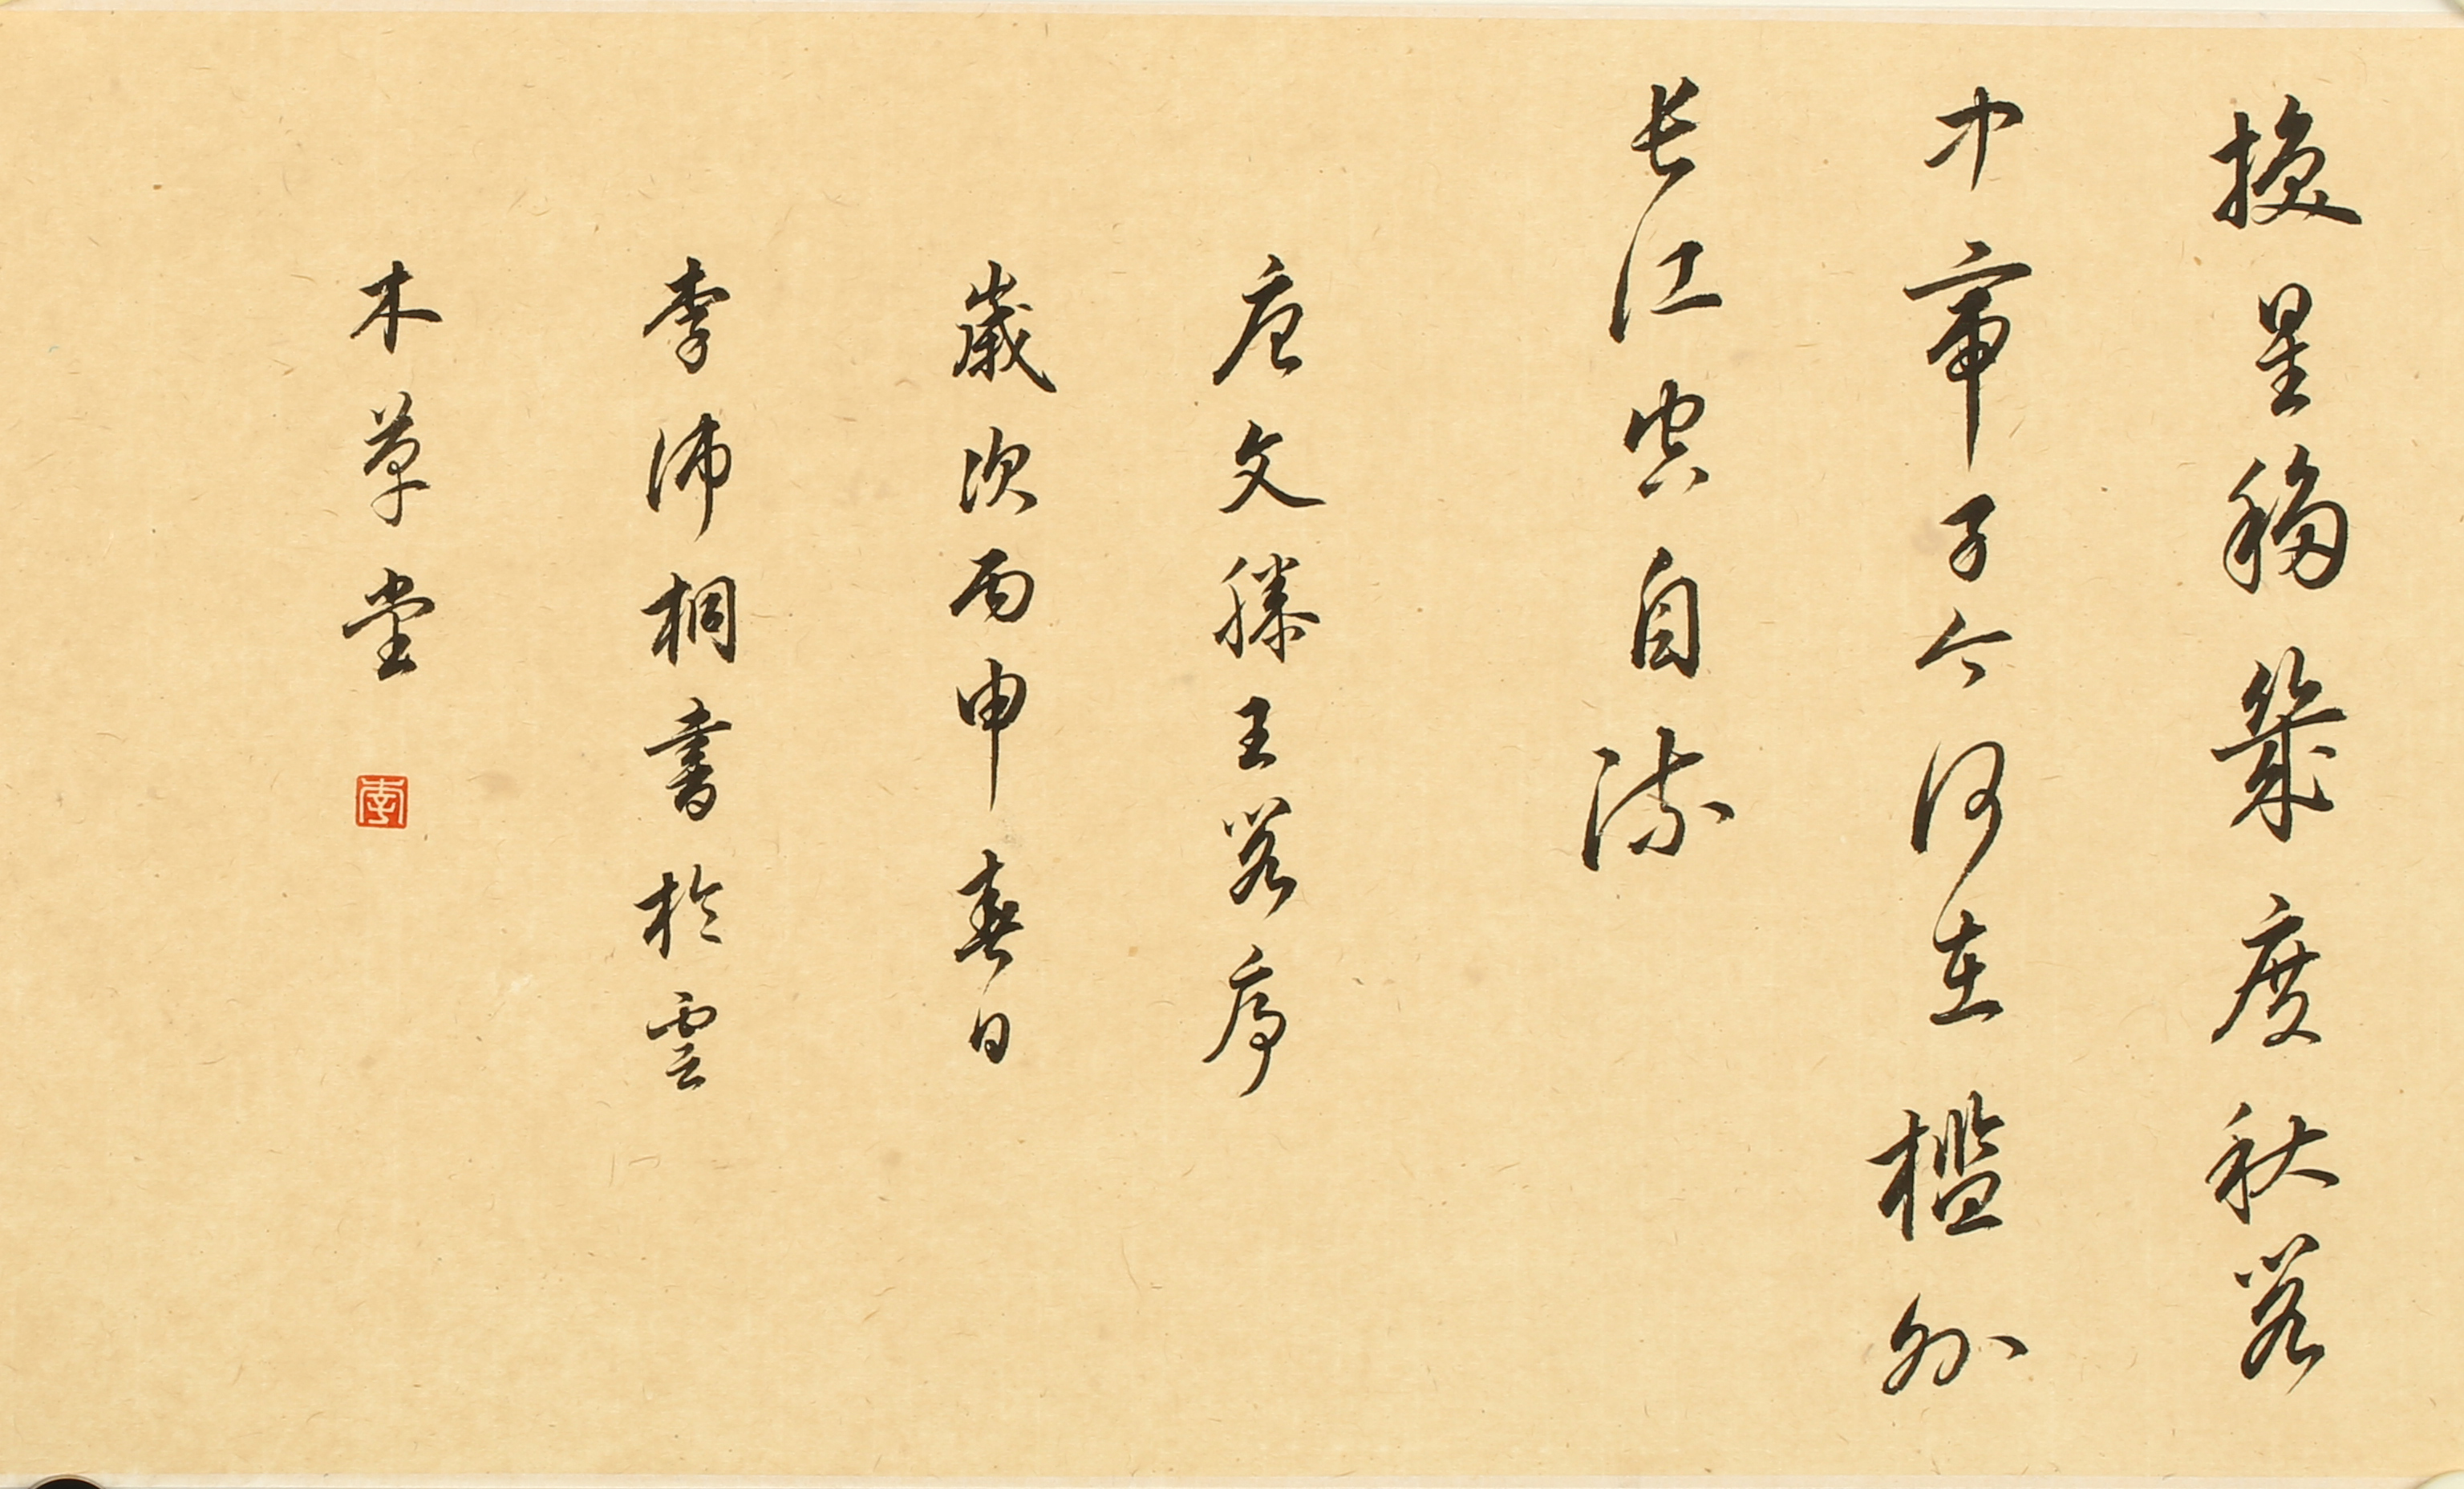 换星移幾度秋閣
中帝子今何在檻外
长江空自流
唐文滕王閣序
歲次丙申春日
李沛桐書於雲
木草堂
李